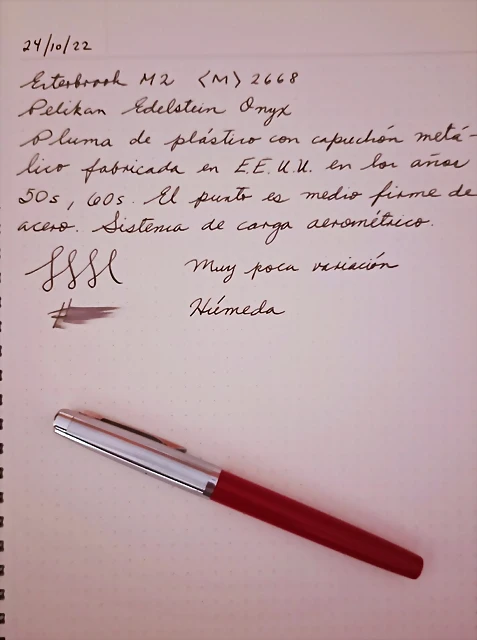 24/10/22
Esterbrook M2 <M> 2668
Pelikan Edelstein Onyx
Pluma de plástico con capuchón metá-
lico fabricada en E.E.U.U. en los años
50s, 60s. El punto es medio firme de
acero. Sistema de carga aerométrico.
Muy poca variación
Húmeda